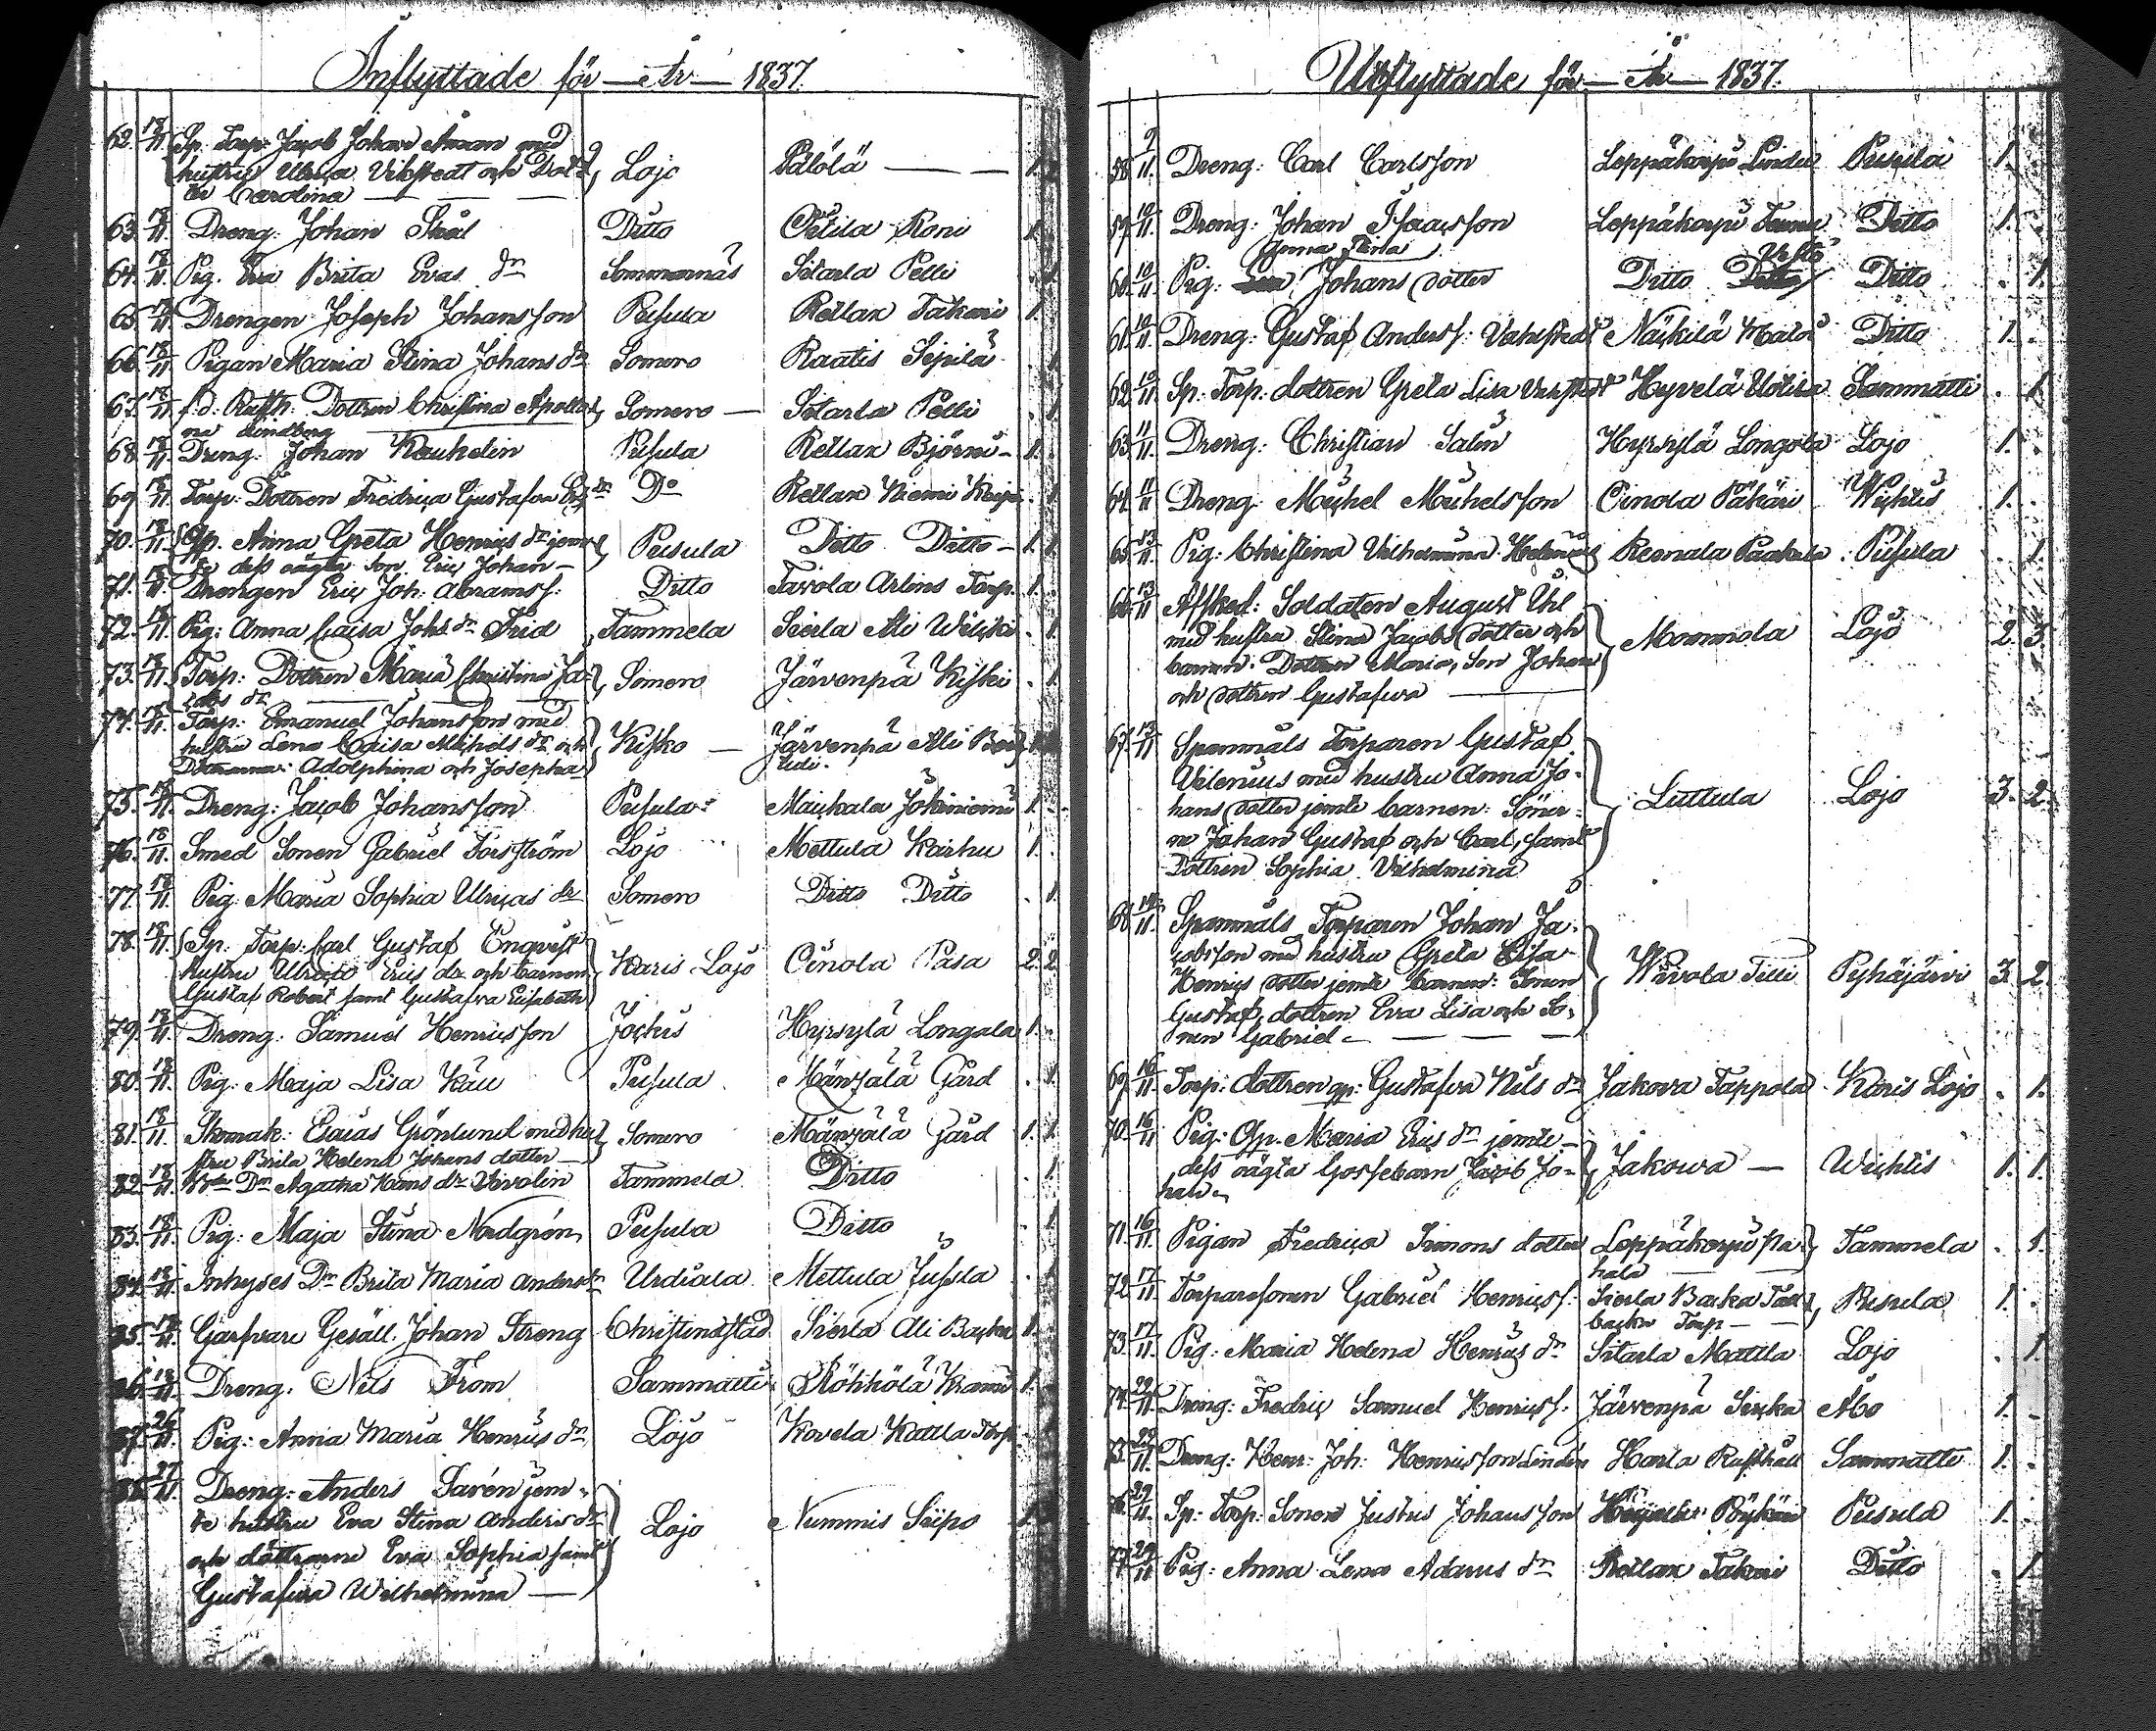 Inflyttade för År 1837.
62. 18/11. Sp. Torp: Jacob Johan med
hustru Ulrica och Dott
er Carolina Lojo Pälölä 1.
63. 18/11. Dreng: Johan Stål Ditto Oitila Koni 1.
64. 18/11. Pig. Eva Brita Evas dr Sommarnäs Sitarla Pelli 1.
65. 18/11. Drengen Joseph Johansson Pusula Retlax Takari 1
66. 18/11. Pigan Maria Stina Johans dr Somero Raatis Sipilä 1
67. 18/11. f.d. Rusth. Dottren Christina Apollo
nia Lindberg Somero Sitarla Pelli 1
68. 18/11. Dreng. Johan Kauhelin Pusula Retlax Björni 1.
69. 18/11. Torp: Dottren Fredrica Gustafva dr Do Retlax Niemi
70. 18/11. Qp. Anna Greta Henrics dr jem
te dess oägta Son Eric Johan Pusula Ditto Ditto 1. 1.
71. 18/11. Drengen Eric Joh: Abramss: Ditto Tavola Arlins Torp. 1.
72. 18/11. Pig: Anna Caisa Johs dr Frid Tammela Sierla Ali 1.
73. 18/11. Torp: Dottren Maria Christina Ja
cobs dr Somero Järvenpä Kiski 1.
74. 18/11. Torp: Emanuel Johansson med
hustru Lena Caisa Michels dr och
Döttrarna: Adolphina och Josepha Kisko Järvenpä Ali
75. 18/11. Dreng: Jacob Johansson Pusula Maikala Jokiniemi 1.
76. 18/11. Smed Sonen Gabriel Forsström Lojo Mettula Karhu 1.
77. 18/11. Pig. Maria Sophia Ulricas dr Somero Ditto Ditto 1.
78. 18/11. Sp: Torp: Carl Gustaf Engvist
hustru Ulrica Erics dr och barnen
Gustaf Robert samt Gustafva Elisabeth Karis Lojo Oinola Pasa 2. 2
79. 18/11. Dreng: Samuel Henricsson Jockis Hyrsylä Longala 1.
80. 18/11. Pig: Maja Lisa Käu Pusula Mänsälä Gård 1.
81. 18/11. Skomak: Esaias Grönlund med hu
stru Brita Helena Johans dotter Somero Mänsälä Gård 1. 1.
82. 18/11. Agatha Hans dr Vivolin Tammela Ditto 1.
83. 18/11. Pig: Maja Stina Nordgrén Pusula Ditto 1.
84. 18/11. Inhyses Dr Brita Maria Anders dr Urdiala Mettula Jussla 1.
85. 18/11. Garfvare Gesäll. Johan Streng Christinestad Sierla Ali Backa 1.
86. 18/11. Dreng: Nils From Sammatti Röhkölä 1.
87. 26/11. Pig: Anna Maria Henrics dr Lojo Kovela Katila Torp
88. 27/11. Dreng: Anders Savén jem
te hustru Eva Stina Anders dr
och döttrarne Eva Sophia samt
Gustafva Wilhelmina Lojo Nummis Seipo
Utflyttade för År 1837.
58 9/11. Dreng: Carl Carlsson Leppäkorpi Pusula 1.
59 10/11. Dreng: Johan Isaacsson Leppäkorpi Ditto 1.
Anna Stina
60. 10/11. Pig: Johans dotter Ditto Ditto 1.
61. 10/11. Dreng: Gustaf Anderss: Näckilä Ditto 1.
62 10/11. Sp: Torp: dottren Greta Lisa Hyvelä Uotila Sammatti 1
63 11/11. Dreng: Christian Salin Hyrsylä Longola Lojo 1.
64 11/11. Dreng Michel Michelsson Oinola Päkäri Wichtis 1.
65 13/11. Pig: Christina Vilhelmina Pusula 1.
66 13/11 Afsked: Soldaten August Uhl
med hustru Stina Jacobs dotter och
barnen: Dottren Maria, Son Johan
och dottren Gustafva Mommola Lojo 2. 3.
67. 13/11 Spanmåls Torparen Gustaf
Vilenius med hustru Anna Jo
hans dotter jemte barnen: Söner
ne Johan Gustaf och Carl, samt
Dottren Sophia Vilhelmina Luttula Lojo 3. 2.
68 14/11. Spanmåls Torparen Johan Ja
cobsson med hustru Greta Lisa
Henrics dotter jemte barnen: Sonen
Gustaf, dottren Eva Lisa och So
nen Gabriel Wivola Tilli Pyhäjärvi 3. 2.
69. 16/11. Torp: dottren qp: Gustafva Nils dr Jakova Tappola Karis Lojo 1.
70. 16/11 Pig: Qp. Maria Erics dr jemte
dess oägta Gossebarn Jacob Jo
han Jakowa Wichtis 1. 1.
71. 16/11. Pigan Fredrica Simons dotter Leppäkorpi Pa
hala Tammela 1.
72 17/11. Torparesonen Gabriel Henricss: Sierla Backa
backa Torp Pusula 1.
73. 17/11. Pig: Maria Helena Henrics dr Sitarla Mattila Lojo 1.
74. 22/11. Dreng: Fredric Samuel Henricss: Järvenpä Sirka Åbo 1.
75. 23/11. Dreng: Henr: Joh: Henricsson Lindén Harla Rusthåll Sammatti 1.
76. 29/11. Sp: Torp: Sonen Justus Johansson Pusula 1.
77. 29/11 Pig: Anna Lena Adams dr Retlax Takari Ditto 1.